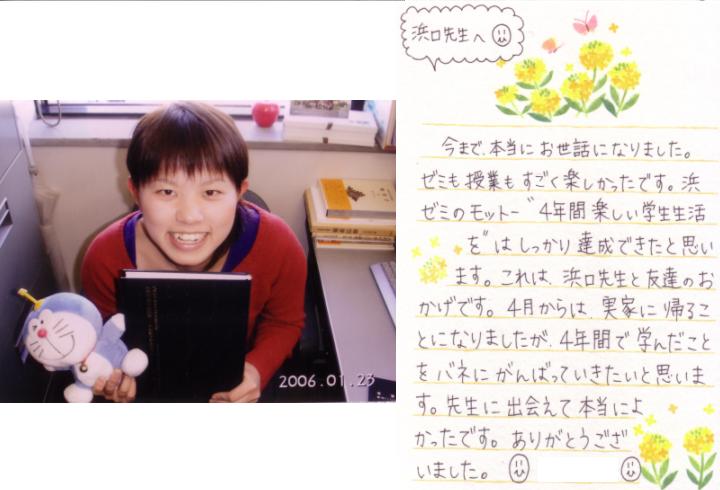 2006.01.23
浜口先生へ
今まで、本当にお世話になりました。
ゼミも授業もすごく楽しかったです。浜
ゼミのモットー"4年間楽しい学生生活
を"はしっかり達成できたと思い
ます。これは、浜口先生と友達のお
かげです。4月からは、実家に帰るこ
とになりましたが、4年間で学んだこと
をバネにがんばっていきたいと思いま
す。先生に出会えて本当によ
かったです。ありがとうござ
いました。